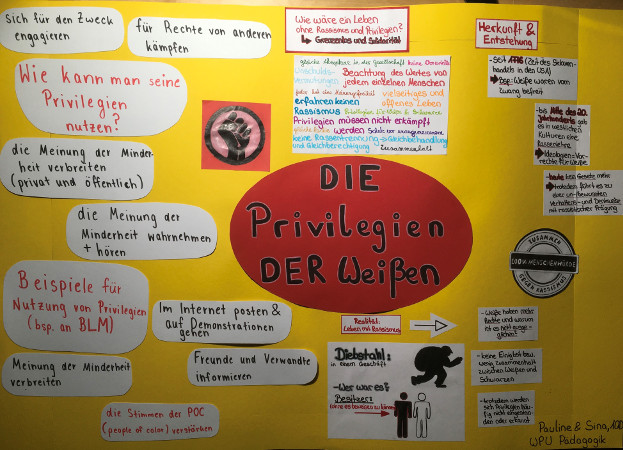 sich für den Zweck
engagieren
für Rechte von anderen
kämpfen
Wie kann man seine
Privilegien
nutzen?
die Meinung der Minder-
heit verbreiten
(privat und öffentlich)
die Meinung der
Minderheit wahrnehmen
+ hören
Beispiele für
Nutzung von Privilegien
(bsp. an BLM)
Im Internet posten &
auf Demonstrationen
gehen
Meinung der Minderheit
verbreiten
Freunde und Verwandte
informieren
die Stimmen der POC
(people of color) verstärken
Wie wäre ein Leben
ohne Rassismus und Privilegien?
Grenzenlos und Solidarität
gleiche Akzeptanz in der Gesellschaft keine Vorurteile
Beachtung des Wertes von
jedem einzelnen Menschen
vielseitiges und
erfahren keinen
offenes Leben
Rassismus
Privilegien müssen nicht erkämpft
werden
keine Rassentrennung Gleichbehandlung
und Gleichberechtigung Zusammenhalt
DIE
Privilegien
DER Weißen
Herkunft &
Entstehung
- seit 1776 (Zeit des Sklaven-
handels in den USA)
Bsp: Weiße waren vom
Zwang befreit
- bis Mitte des 20.
Jahrhunderts gab
es in westlichen
Kulturen eine
Rassenlehre
Ideologien: Vor-
rechte für Weiße
- heute kein Gesetz mehr
trotzdem führt es zu
einer un-/bewussten
Verhaltens- und Denkweise
mit rassistischer Prägung
ZUSAMMEN
100% MENSCHENWÜRDE
GEGEN RASSISMUS
Realität:
Leben mit Rassismus
Diebstahl:
in einem Geschäft
- Wer war es?
Besitzer:
(ohne es bewiesen zu können)
- Weiße haben mehr
Rechte und warum
ist es nicht ausge-
glichen?
- keine Einigkeit bzw.
wenig Zusammenheit
zwischen Weißen und
Schwarzen
- trotzdem werden
sich Privilegien häu-
fig nicht eingestan-
den oder erkannt
Pauline & Sina, 10D
WPU Pädagogik